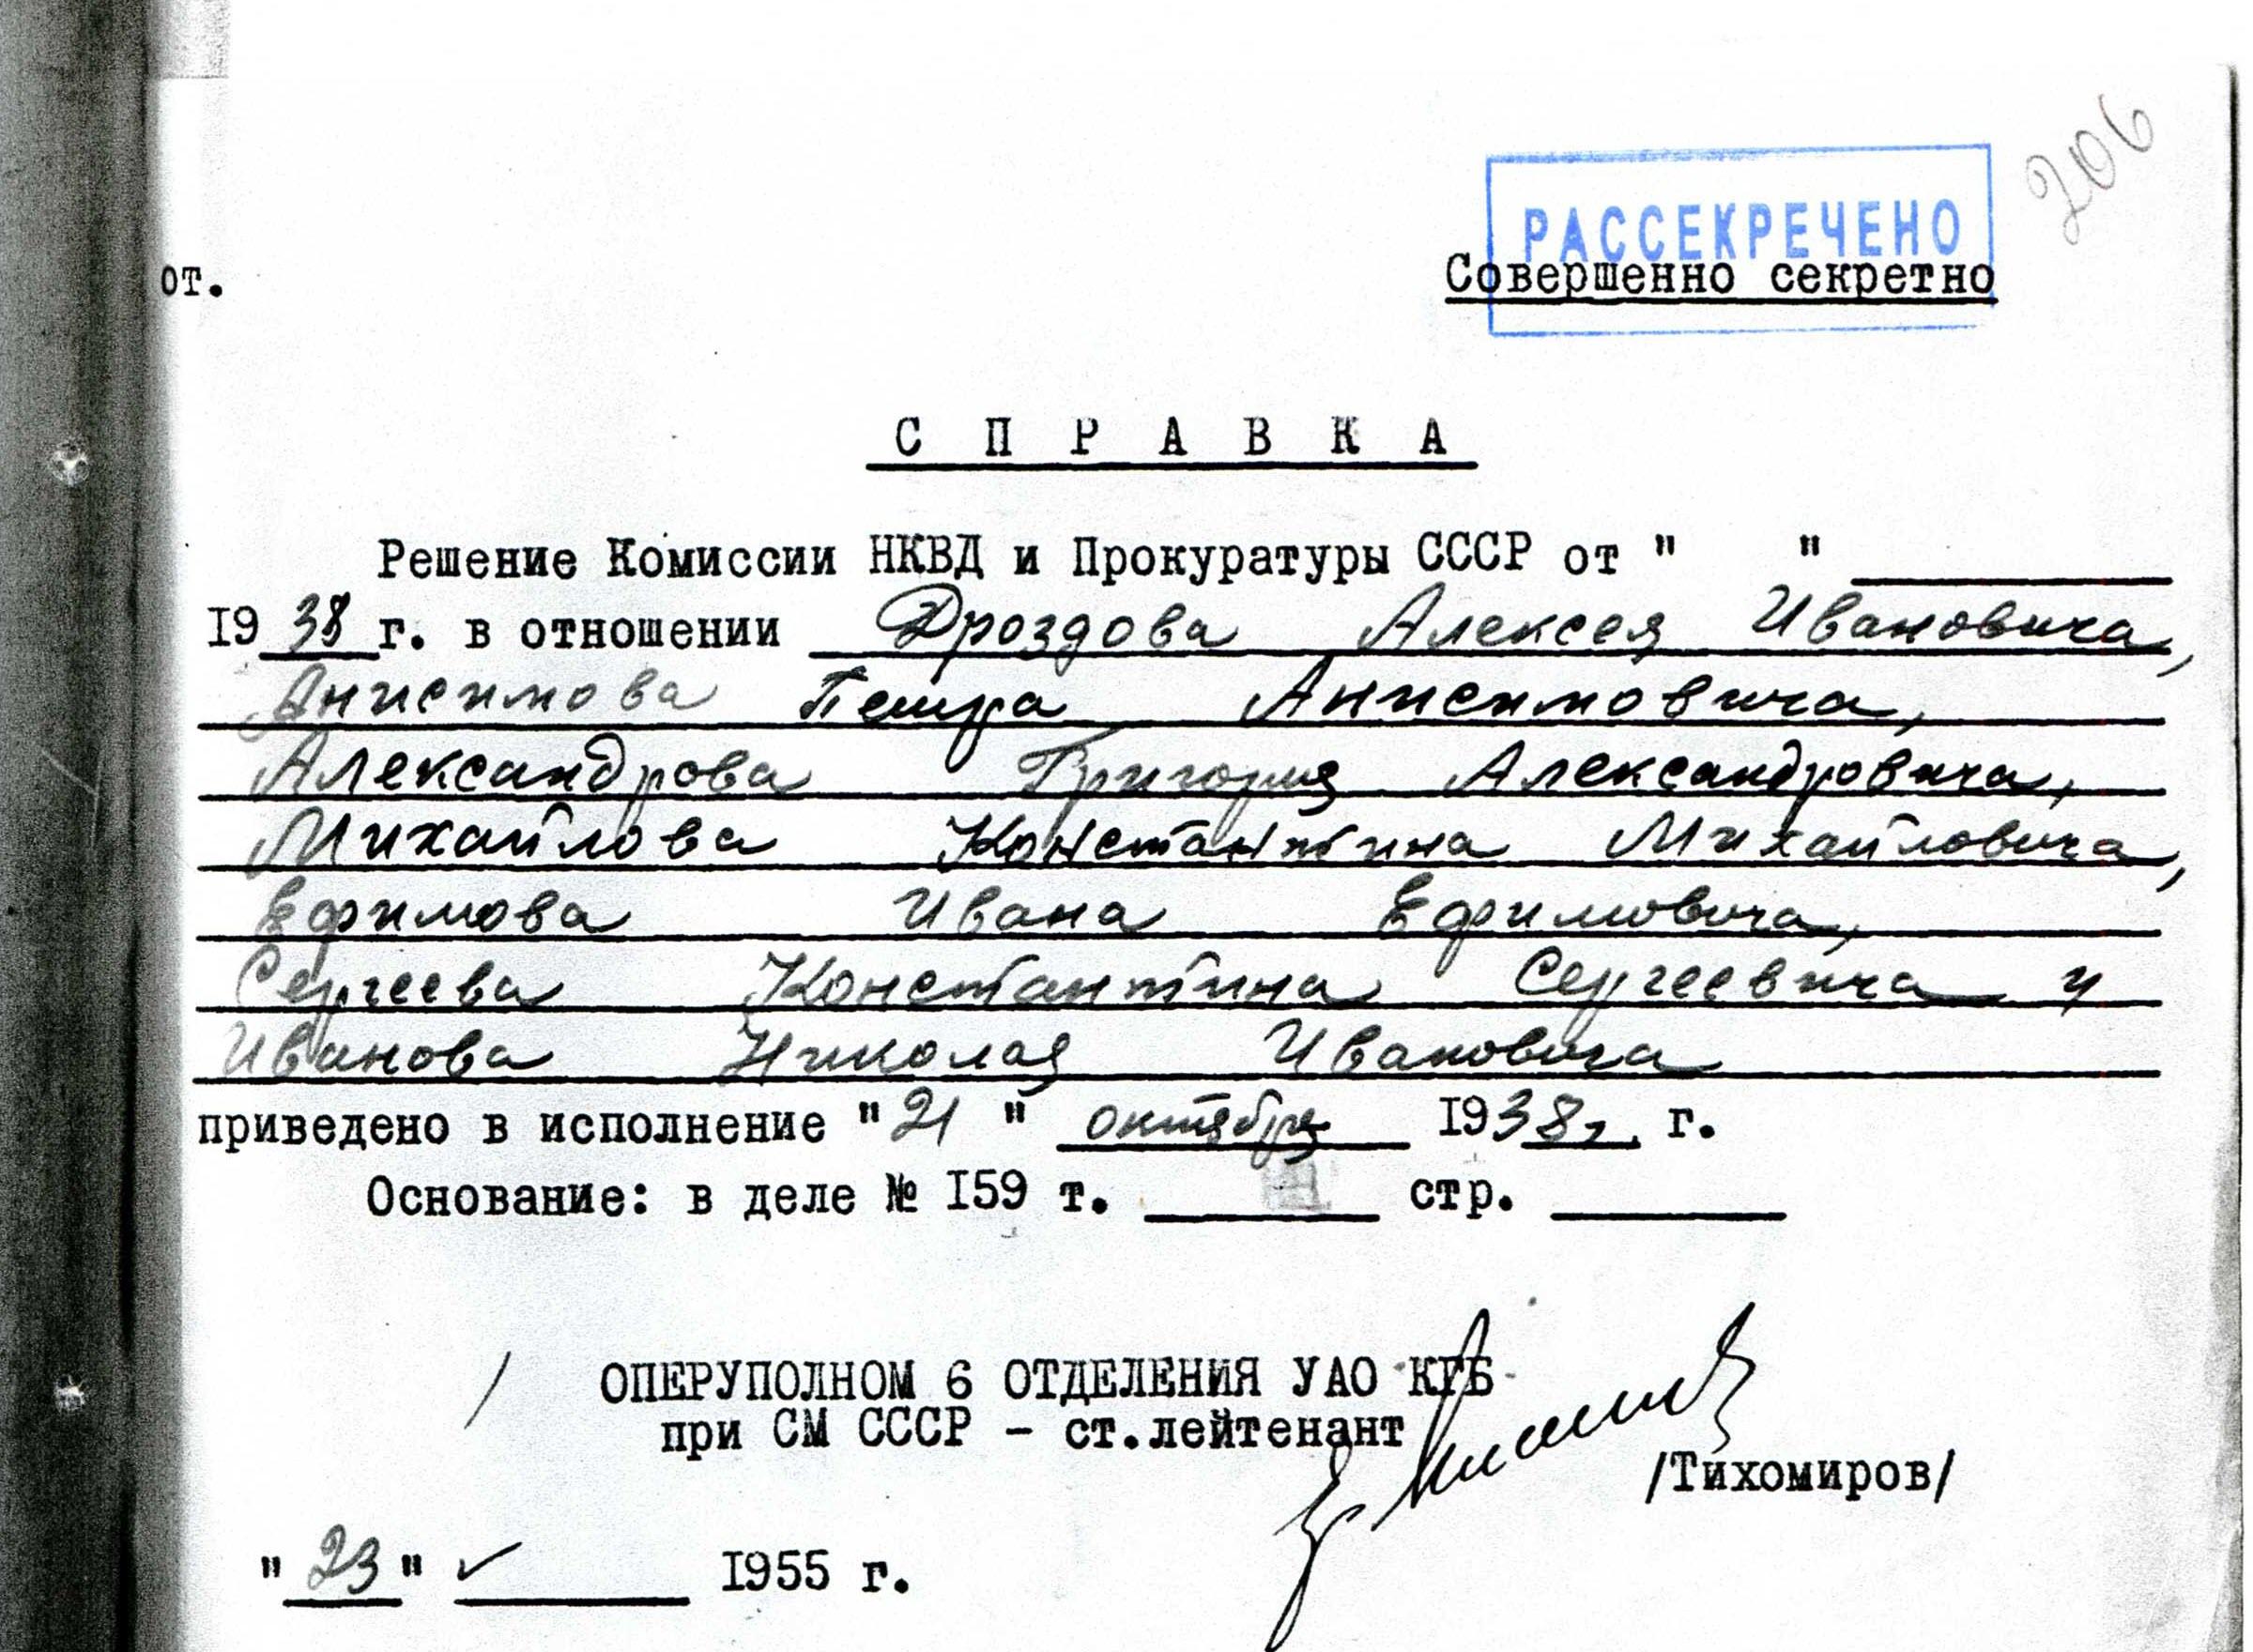 206
РАССЕКРЕЧЕНО
от.
Совершенно секретно
СПРАВКА
Решение Комиссии НКВД и Прокуратуры СССР от " "
1938 г. в отношении Дроздова Алексея Ивановича,
Анисимова Петра Анисимовича,
Александрова Григория Александровича,
Михайлова Константина Михайловича,
Ефимова Ивана Ефимовича,
Сергеева Константина Сергеевича и
Иванова Николая Ивановича
приведено в исполнение "21" октября 1938 г. г.
Основание: в деле № 159 т. стр.
ОПЕРУПОЛНОМ 6 ОТДЕЛЕНИЯ УАО КГБ
при СМ СССР - ст.лейтенант
/Тихомиров/
"23" 1955 г.